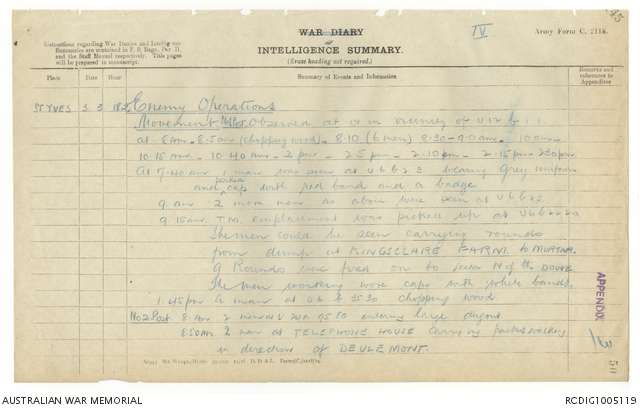 WAR DIARY
or
INTELLIGENCE SUMMARY.
(Erase heading not required.)
IV
Army Form C. 2118.
Instructions regarding War Diaries and Intelligence
Summaries are contained in F. S. Regs., Part II.
and the Staff Manual respectively. Title pages
will be prepared in manuscript.
Place
Date
Hour
Summary of Events and Information
Remarks and
references to
Appendices
ST YVES 3 3 18 Enemy Operations
Movement Observed at in vicinity of U 12 b
at 8 am - 8.50am (chopping wood) - 8.10 (6 men) 8.30 - 9.0 am - 10 am
10-15 am - 10-40 am - 2 pm - 2.5 pm - 2.10 pm - 2.15 pm 2.30 pm
At 9.40 am 1 man was seen at U 6 b 2 3 wearing grey uniform
and peaked cap with red band and a badge
9 am 2 men as above were seen at U 6 b 2 3
9.15am T.M. emplacement was picked up at U 6 b
The men could be seen carrying rounds
from dump at KINGSCLARE FARM to MORTAR.
9 Rounds were fired on to sector N of the DOUVE
The men working wore caps with white bands.
1.45 pm man at U 6 b 35 30 chopping wood
No 2 Post 8 Am 2 men U 20a 95 80 carrying large
8.50 Am 2 men at TELEPHONE HOUSE carrying packs walking
in direction of DEULEMONT.
APPENDIX
AUSTRALIAN WAR MEMORIAL
RCDIG1005119